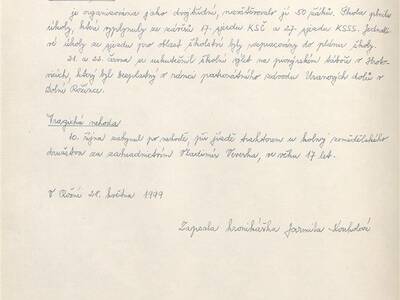 je organizována jako dvojtřídní, navštěvovalo ji 50 žáků. Škola plnila
úkoly, které vyplynuly ze závěrů 17. sjezdu KSČ a 27. sjezdu KSSS. Jednotli-
vé úkoly ze sjezdu pro oblast školství byly zapracovány do plánu školy.
21. a 22. června se uskutečnil školní výlet na pionýrském táboře v
který byl bezplatný v rámci patronátního závodu Uranových dolů v
Dolní Rožínce.
Tragická nehoda
10. října zahynul po nehodě, při jízdě traktorem u kolny zemědělského
družstva za zahradnictvím Vladimír Veverka, ve věku 17 let.
V Rožné 28. května 1999
Zapsala kronikářka Jarmila